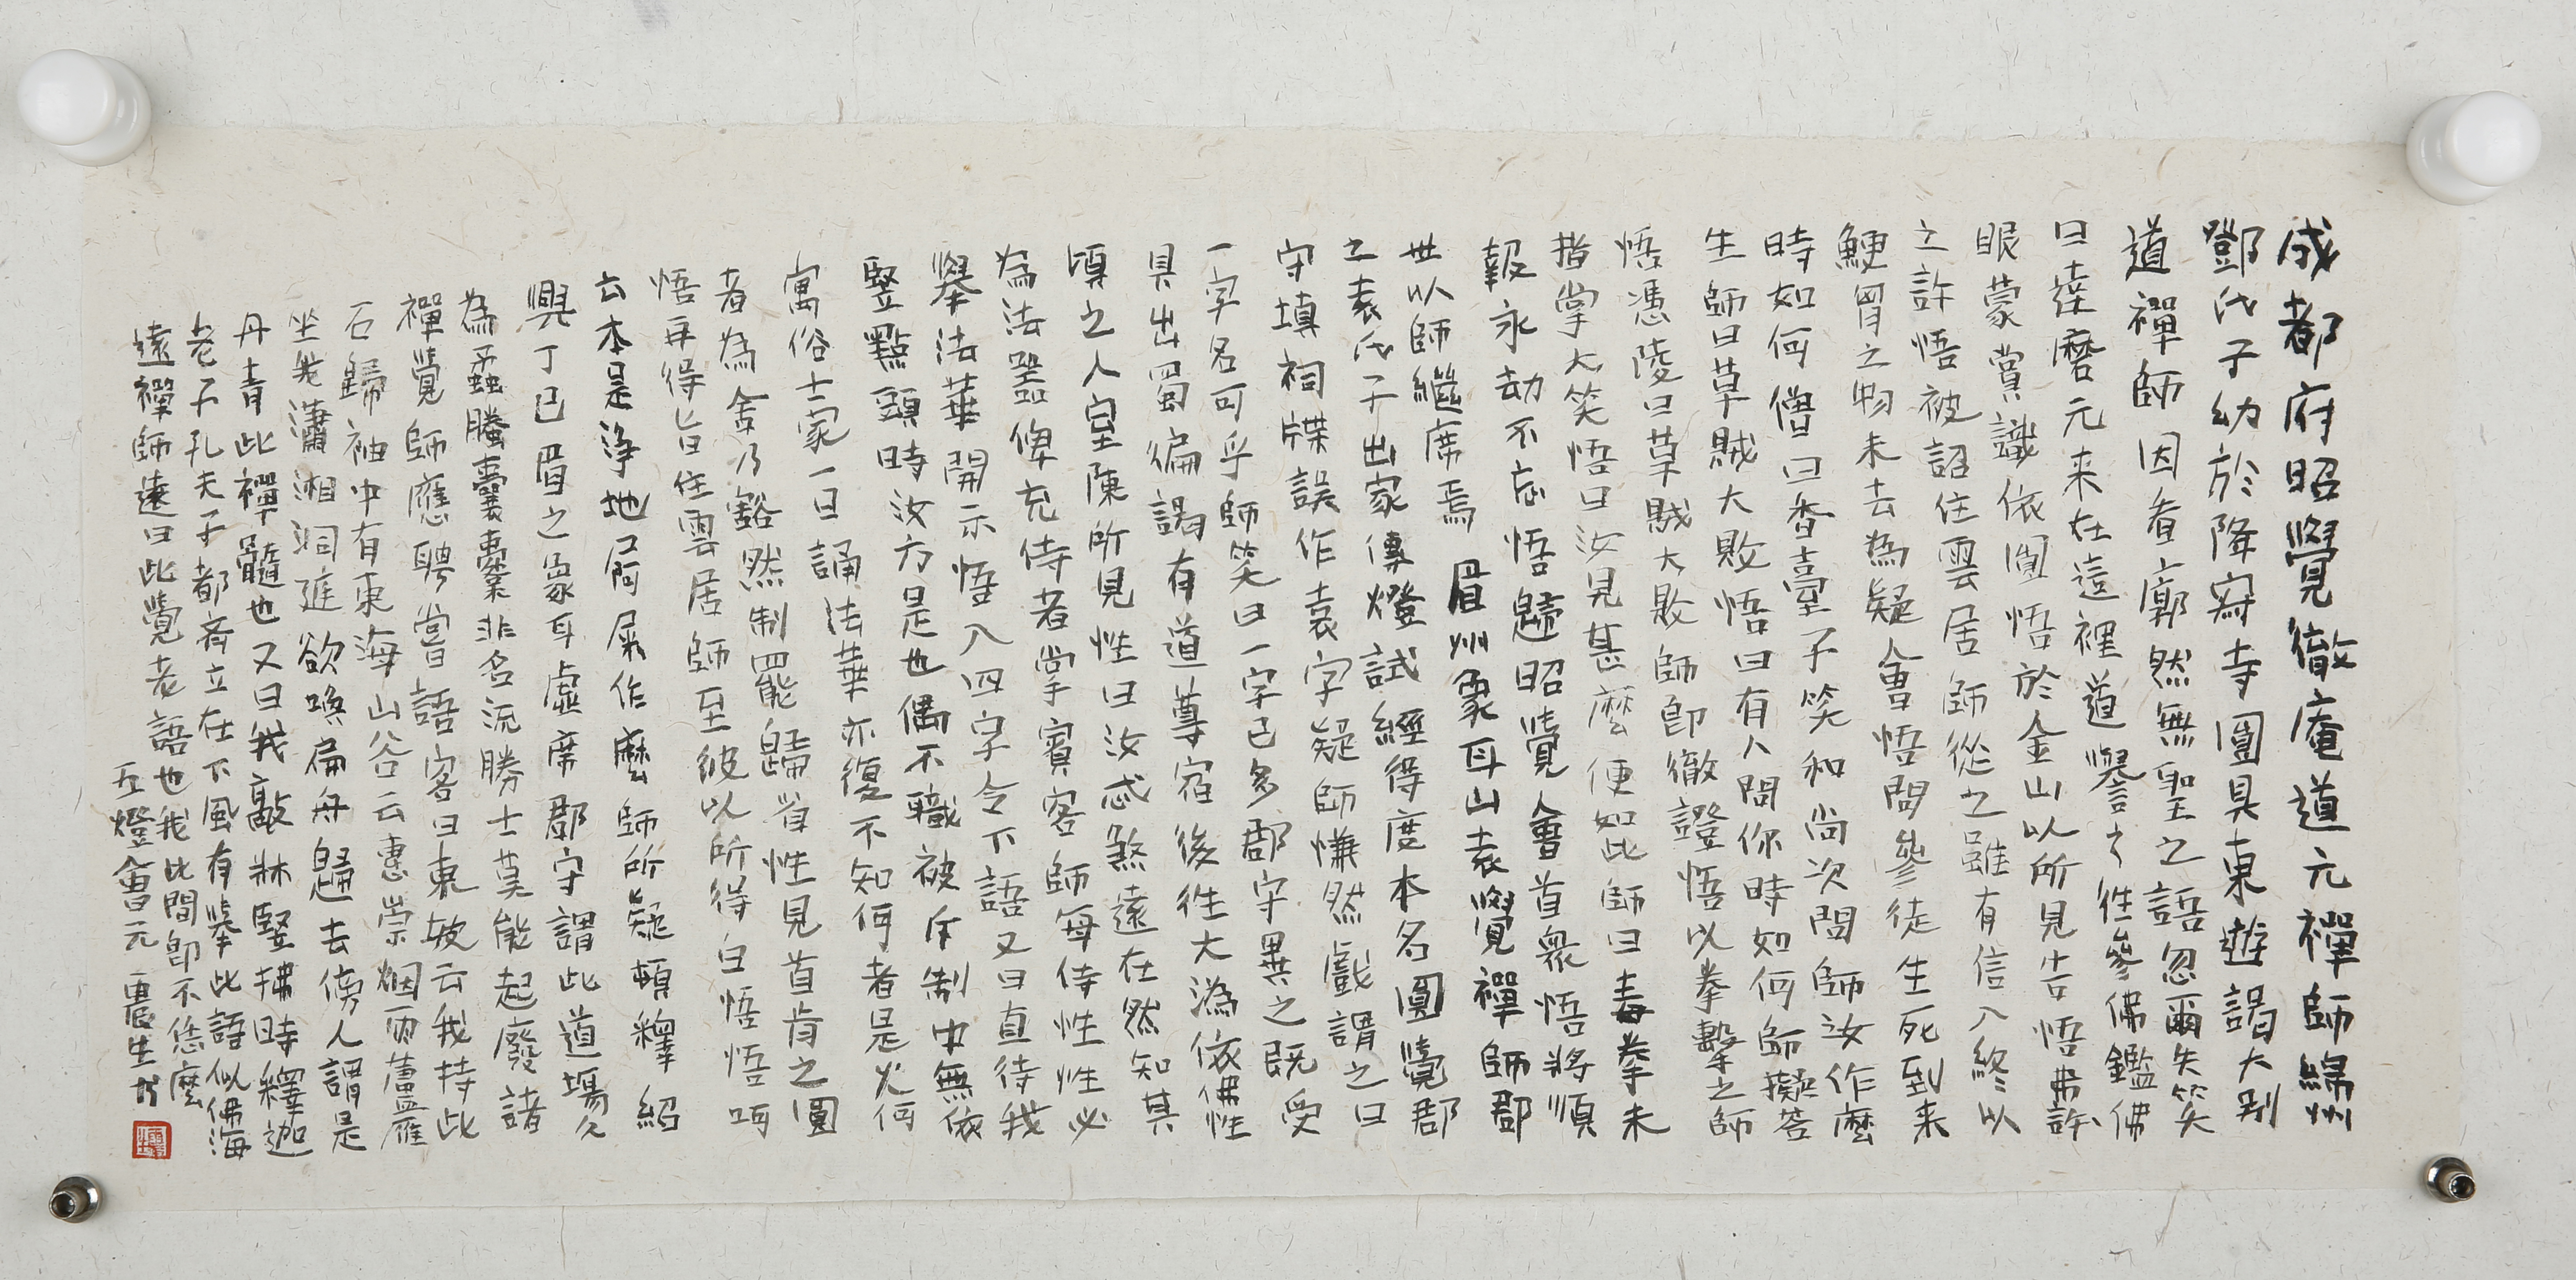 成都府昭覺徹庵道元禪師綿州
鄧氏子幼於降寂寺圓具東遊謁大別
道禪師因看廓然無聖之語忽爾失笑
曰達磨元来在這裡道譽之往參佛鑑佛
眼蒙賞識依圓悟於金山以所見告悟弗許
之許悟被詔住雲居師從之雖有信入終以
鯁胷之物未去為疑會悟問參徒生死到来
時如何僧曰香臺子笑和尚次問師汝作麼
生師曰草賊大敗悟曰有人問你時如何師擬答
悟憑陵曰草賊大敗師即徹證悟以拳擊之師
指掌大笑悟曰汝見甚麼便如此師曰毒拳未
報永劫不忘悟歸昭覺會首衆悟將順
世以師繼席焉 眉州象耳山袁覺禪師郡
之袁氏子出家傳燈試經得度本名圓覺郡
守填祠牒誤作袁字疑師慊然戲謂之曰
一字名可乎師笑曰一字已多郡守異之既受
具出蜀徧謁有道尊宿後往大溈依佛性
頃之入室陳所見性曰汝忒煞遠在然知其
為法器俾充侍者掌賓客師每侍性性必
舉法華開示悟入四字令下語又曰直待我
竪點頭時汝方是也偶不職被斥制中無依
寓俗士家一日誦法華亦復不知何者是火何
者為舍乃豁然制罷歸省性見首肯之圓
悟再得旨住雲居師至彼以所得白悟悟呵
云本是淨地屙屎作麼師所疑頓釋紹
興丁巳眉之象耳虛席郡守謂此道場久
為蟊螣囊橐非名流勝士莫能起廢諸
禪覺師應聘嘗語客曰東坡云我持此
石歸袖中有東海山谷云惠崇烟雨蘆雁
坐我瀟湘洞庭欲喚扁舟歸去傍人謂是
丹青此禪髓也又曰我敲牀竪拂時釋迦
老子孔夫子都齊立在下風有舉此語似佛海
遠禪師遠曰此覺老語也我此間即不恁麼
五燈會元 農生書